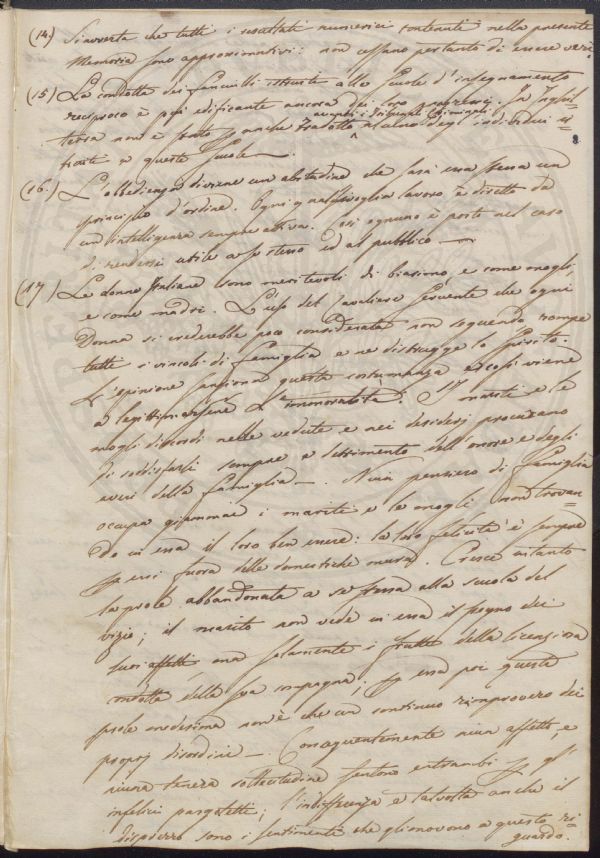 (14.) Si avverta che tutti i risultati numerici contenuti nella presente
Memoria sono approssimativi: non cessano pertanto di essere veri.
(15) La condotta dei fanciulli istruite alle Scuole d'insegnamento
reciproco è più edificante ancora dei loro progressi. In Inghil=
avanti i Tribunali Criminali
terra non è stato per anche tradotto alcuno degli individui i=
struiti a queste Scuole.
(16.) L'obbedienza diviene un abitudine che farà essa stessa un
principio d'ordine. Ogni qualsivoglia lavoro è diretto da
un intelligenza sempre attiva. Così ognuno è posto nel caso
di rendersi utile a se stesso ed al pubblico —
(17) Le donne Italiane sono meritevoli di biasimo, e come mogli,
e come madri. L'uso del Cavaliere Servente che ogni
Donna si crederebbe poco considerata non seguendo rompe
tutti i vincoli di famiglia e ne distrugge lo spirito.
L'opinione sanziona questa costumanza e così viene
a legittimarsene l'immoralità. I mariti e le
mogli discordi nelle vedute e nei desiderj procurano
di soddisfarli sempre a detrimento dell'onore e degli
averi della famiglia —. Niun pensiero di famiglia
occupa giammai i mariti e le mogli non trovan=
do in essa il loro ben essere: la loro felicità è sempre
per essi fuora delle domestiche mura. Cresce intanto
la prole abbandonata a se stessa alla scuola del
vizio; il marito non vede in essa il pegno dei
suoi affetti, ma solamente i frutti della licenziosa
condotta della sua compagna; per essa poi questa
prole medesima non è che un continuo rimprovero dei
proprj disordini —. Conseguentemente niun affetto, e
niuna tenera sollecitudine sentono entrambi per gl'
infelici pargoletti; l'indifferenza e talvolta anche il
disprezzo sono i sentimenti che gli movono a questo ri=
guardo.